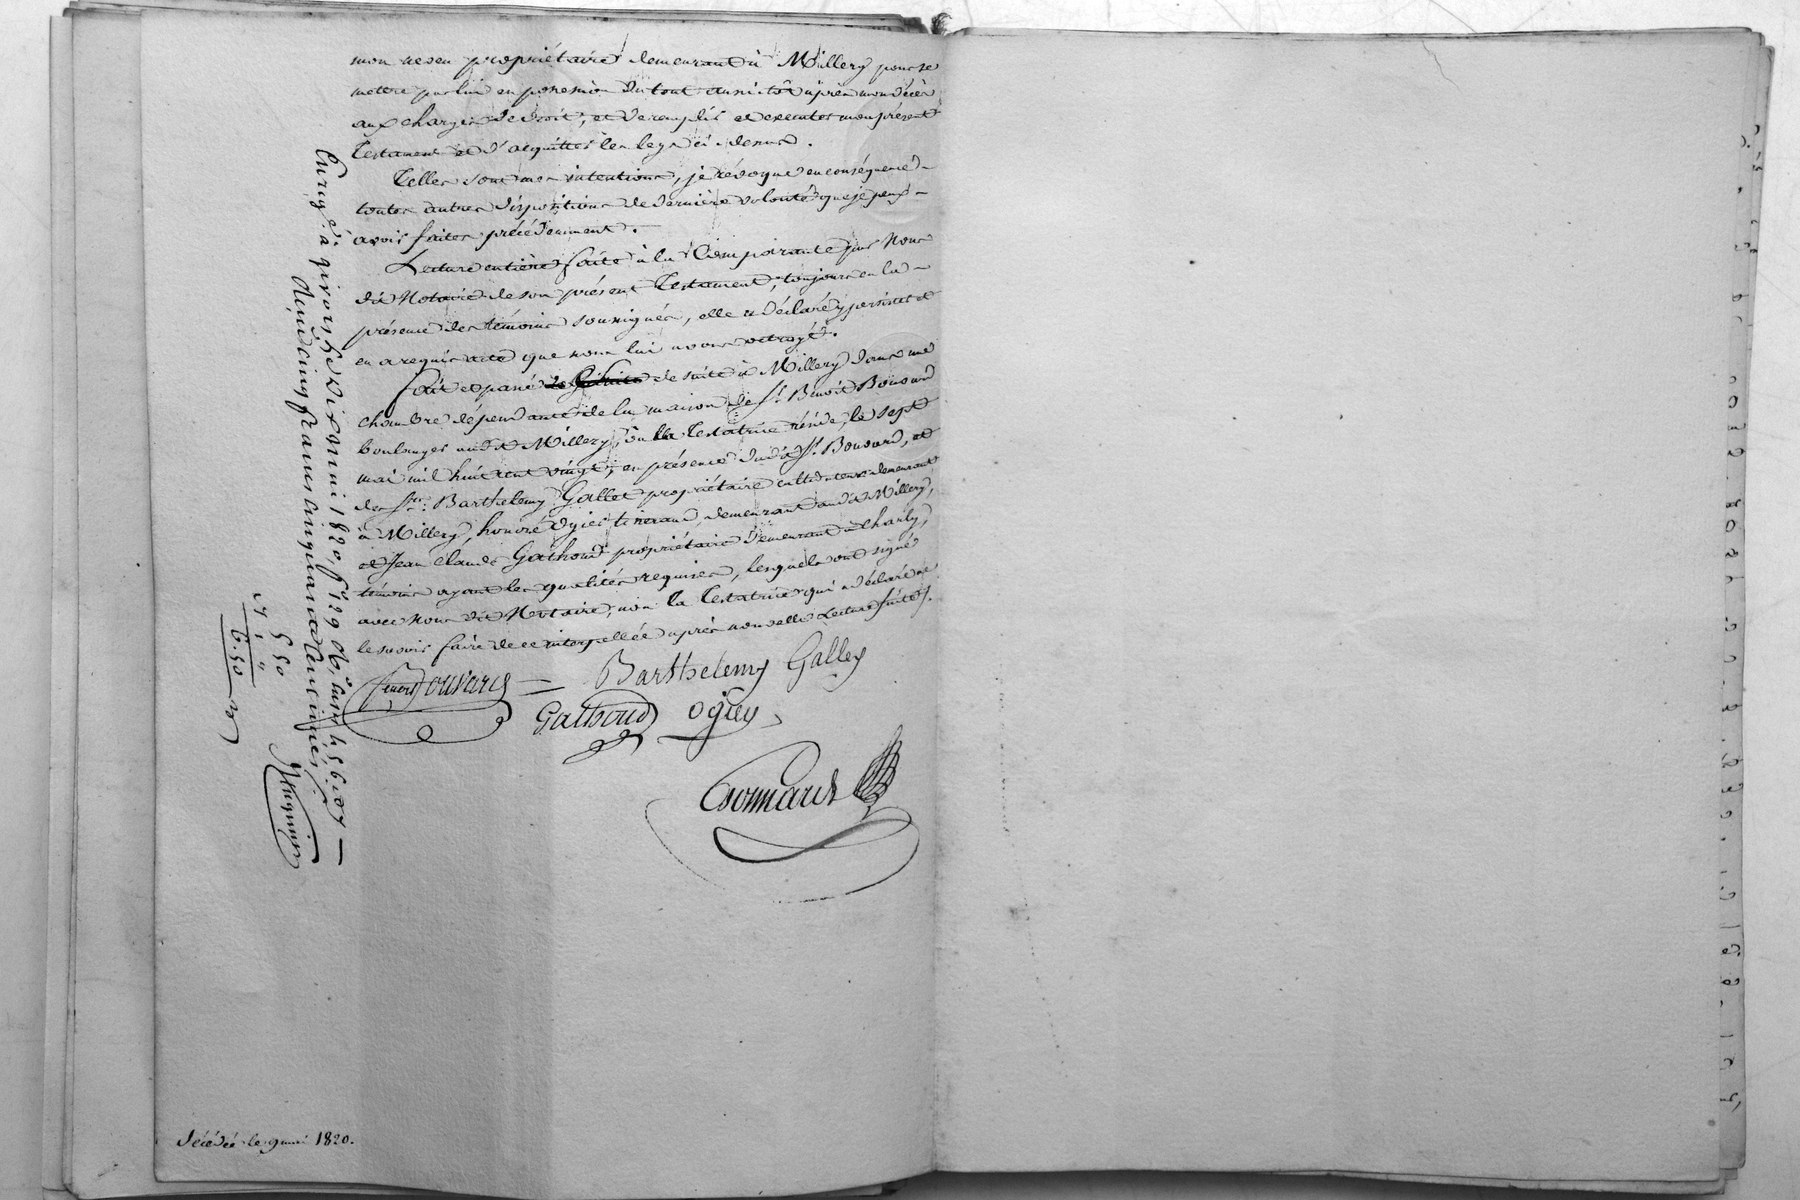 mon neveu propriétaire demeurant à Millery pour se
mettre par lui en possession du tout aussitôt après mon décès
aux charges de droit, et de remplir et executer mon présent
Testament et d'acquitter les legs ci-dessus.
Telles sont mes intentions, je révoque en conséquence
toutes autres dispositions de dernière volonté que je peux
avoir faites précédemment.
Lecture entière faite à la Comparante par Nous
dit Notaire de son présent Testament, toujours en la
présence des témoins soussignés, elle a déclaré y persister et
en a requis acte que nous lui avons octroyé.
Fait et passé de suite à Millery dans une
chambre dépendante de la maison de Sr. Benoit Bouvard
boulanger audit Millery, où la Testatrice réside, le sept
mai mil huit cent vingt, en présence dudit Sr. Bouvard, et
des Srs. Barthelemy Gallet propriétaire cultivateur demeurant
à Millery, honoré Ogier tisserand, demeurant audit Millery,
et Jean Claude Gathoud propriétaire demeurant à Charly,
témoins ayant les qualités requises, lesquels ont signé
avec Nous dit Notaire, non la Testatrice qui a déclaré ne
le savoir faire de ce interpellée après nouvelle Lecture faite.
Benoit Bouvard
Barthelemy Galley
Gathoud
ogiey
Bonnard
Enregé. à givors le dix mai 1820, fo 129 Ro, case 4 5 6
Reçu cinq francs cinquante centimes
5 50
6. 50
décédée le 9 mai 1820.